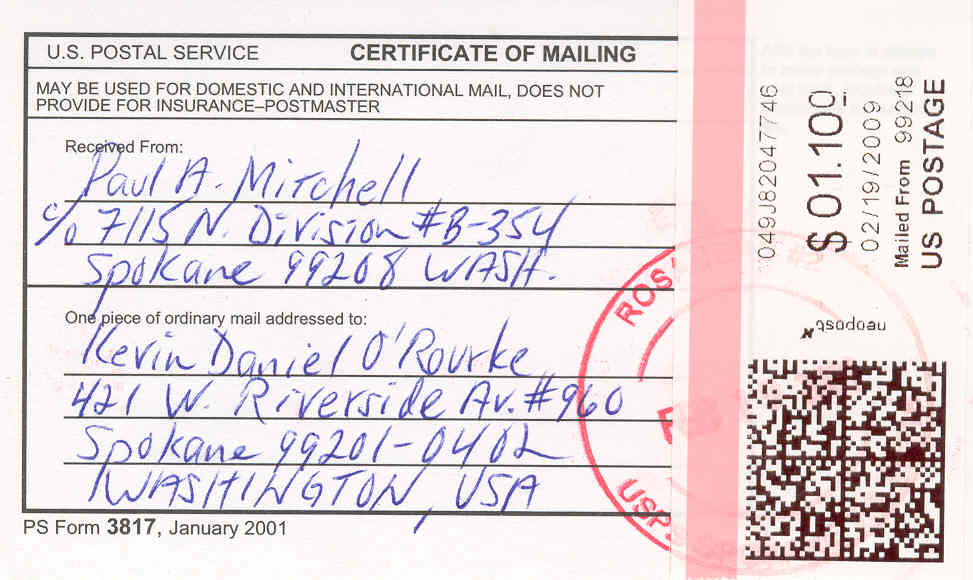 U.S. POSTAL SERVICE CERTIFICATE OF MAILING
MAY BE USED FOR DOMESTIC AND INTERNATIONAL MAIL, DOES NOT
PROVIDE FOR INSURANCE–POSTMASTER
Received From:
Paul A. Mitchell
c/o 7115 N. Division #B-354
Spokane 99208 WASH.
One piece of ordinary mail addressed to:
Kevin Daniel O'Rourke
421 W. Riverside Av. #960
Spokane 99201-0402
WASHINGTON, USA
PS Form 3817, January 2001
049J82047746
$ 01.100
02/19/2009
Mailed From 99218
US POSTAGE
neopost
USPS